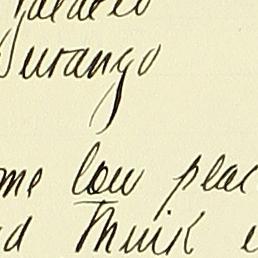 Durango
me low plac
d Think